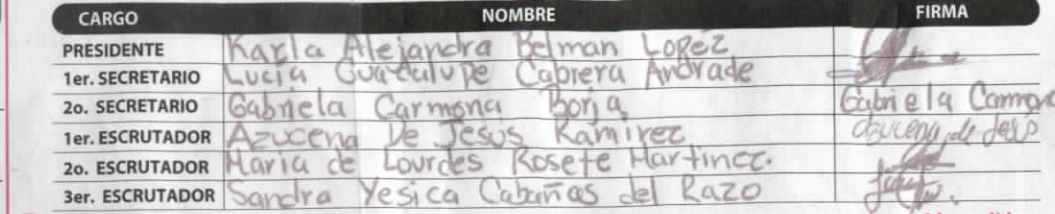 CARGO NOMBRE FIRMA
PRESIDENTE Karla Alejandra Belman Lopez
1er. SECRETARIO Lucia Guadalupe Cabrera Andrade
2o. SECRETARIO Gabriela Carmona Borja Gabriela Carmona
1er. ESCRUTADOR Azucena De Jesus Ramirez Azucena de Jesús
2o. ESCRUTADOR Maria de Lourdes Rosete Martinez.
3er. ESCRUTADOR Sandra Yesica Cabañas del Razo